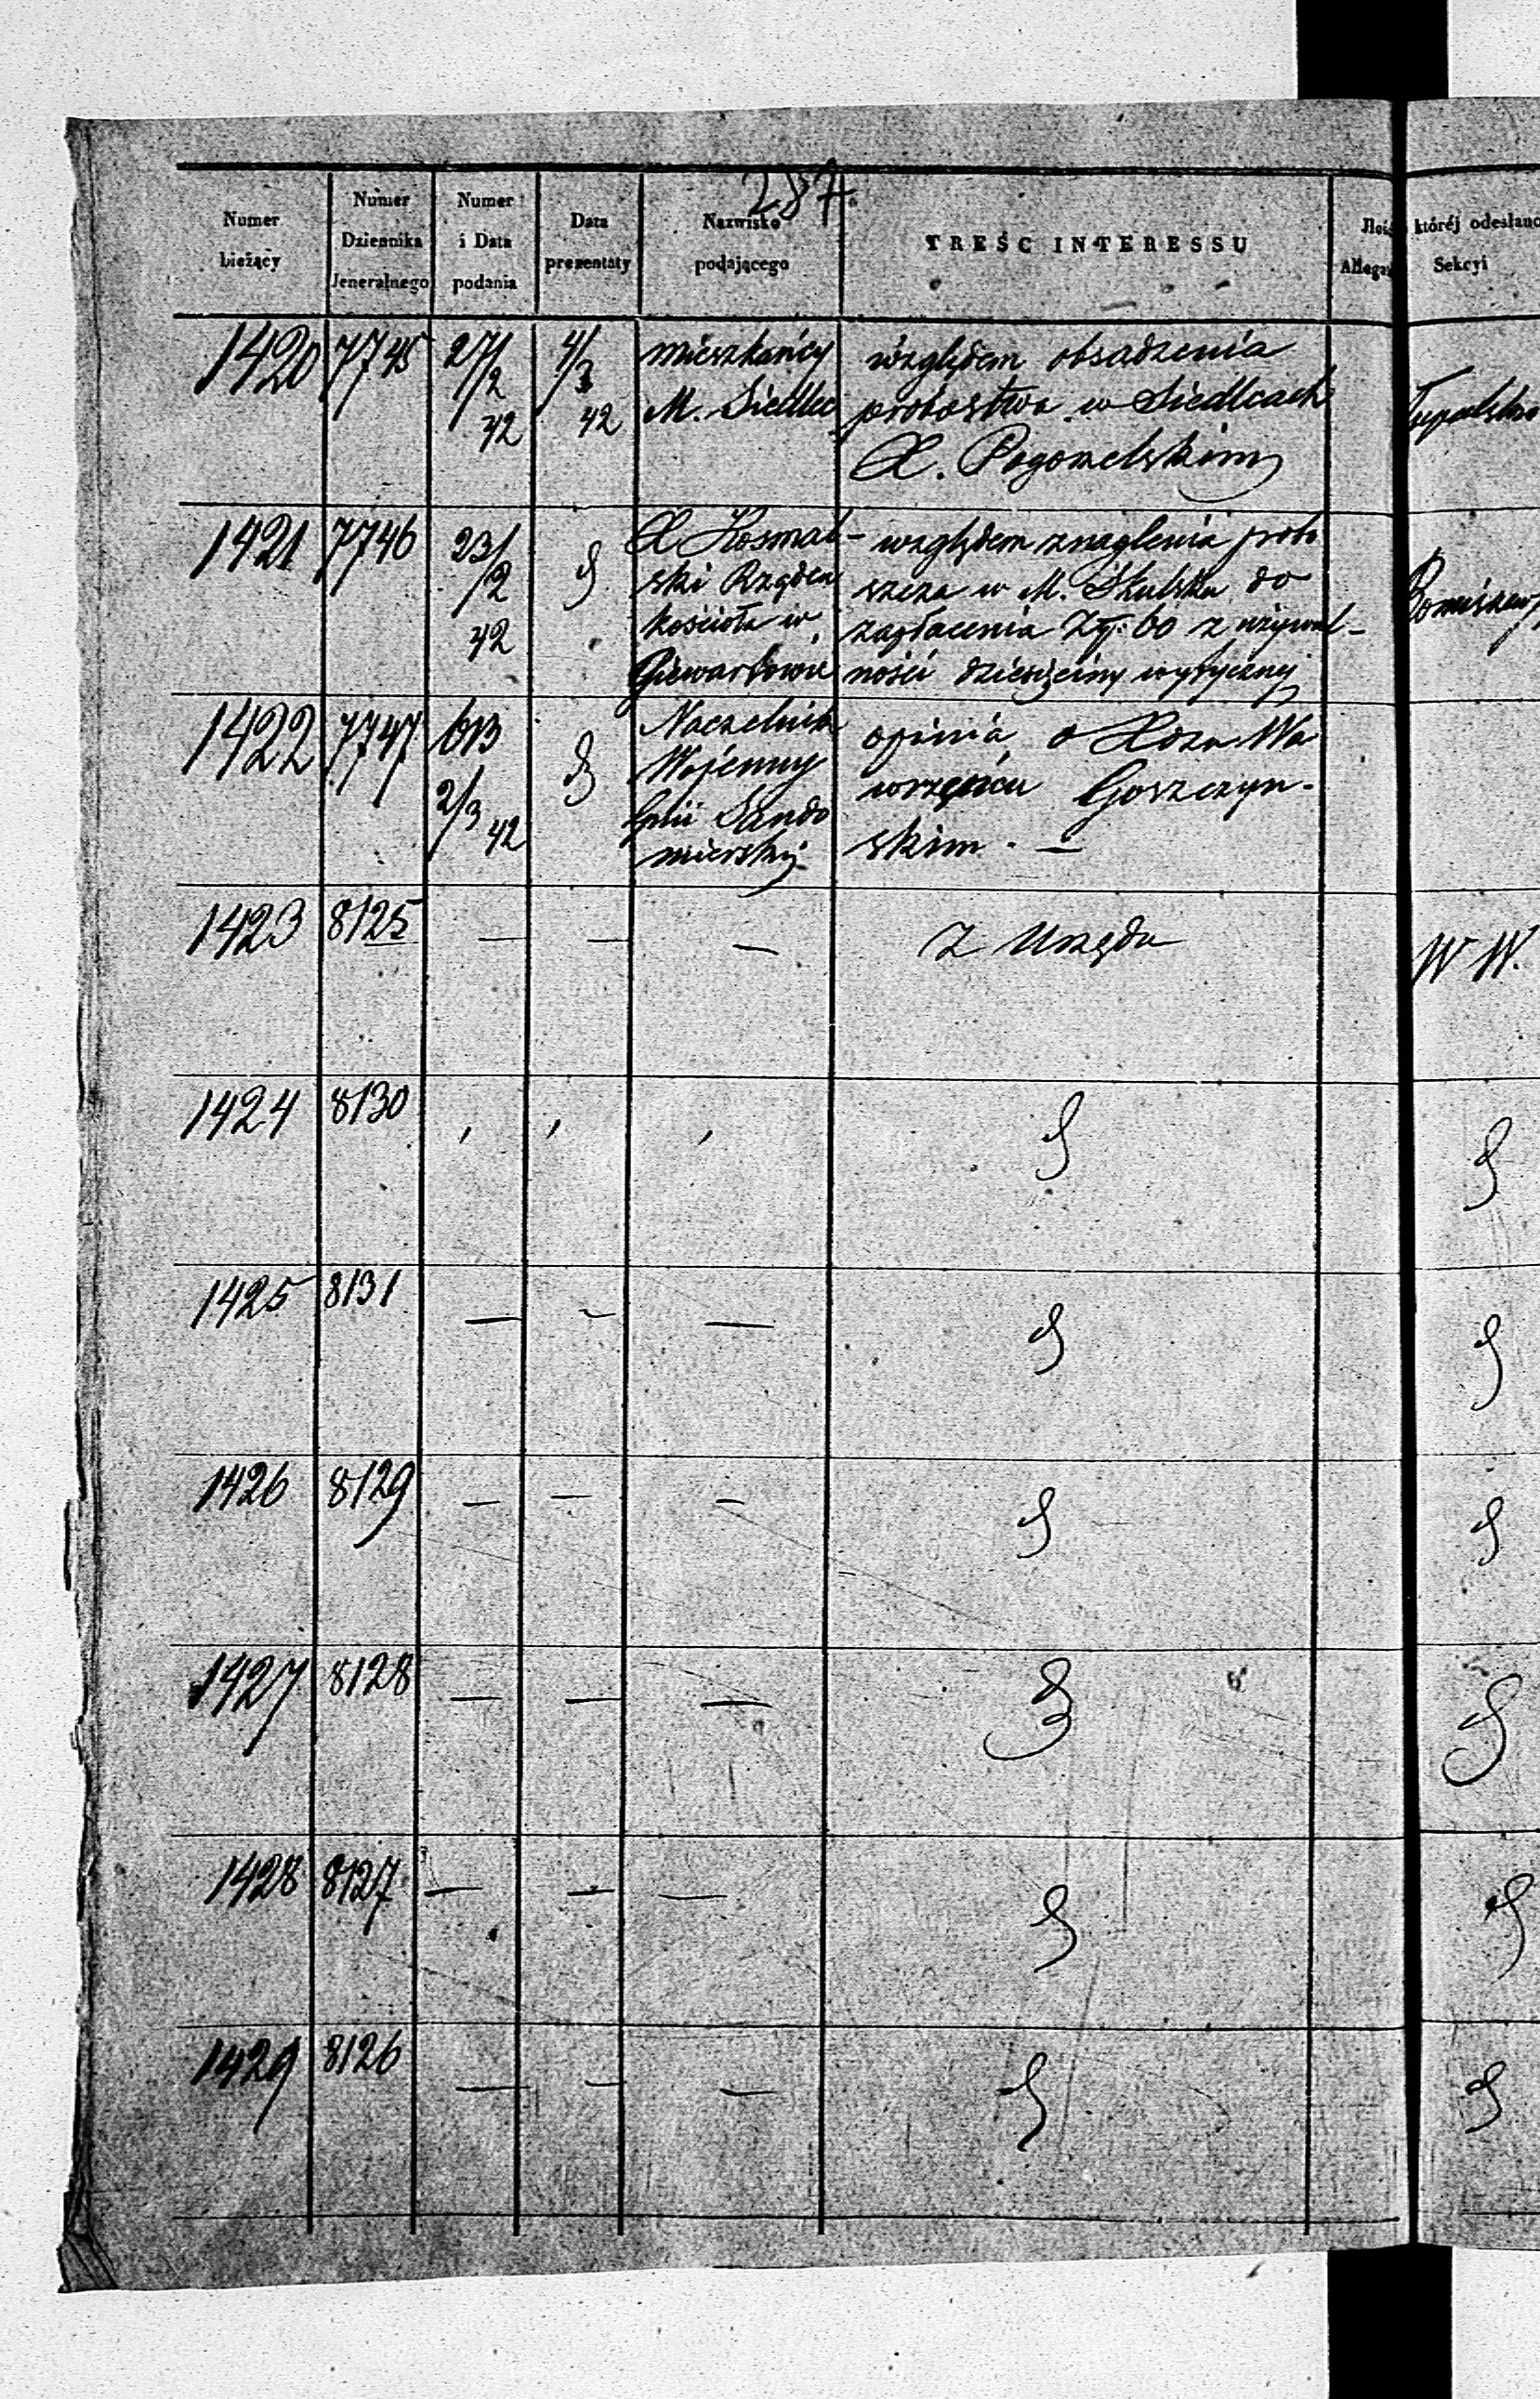 287.
Numer bieżący
Numer Dziennika Jeneralnego
Numer i Data podania
Data prezentaty
Nazwisko podającego
TREŚĆ INTERESSU
któréj odesłano
Sekcyi
1420 7745 27/2 42 4/3 42
mieszkańcy
M. Siedlec
względem obsadzenia
probostwa w Siedlcach
X. Pogorzelskim
1421 7746 23/2 42
X Kosmal-
ski Rządca
kościoła w
Giewartowie
względem znaglenia probo
szcza w M. Skulsku do
zapłacenia Złp: 60 z używal-
ności dziesięciny wytycznej
1422 7747 613 2/3 42
Naczelnik
Wojenny
Gnii Sando
mierskiej
opinia o Xdzu Wa
wrzyńcu Goszczyn-
skim. —
1423 8125 — — — Z Urzędu W W.
1424 8130
1425 8131 — — —
1426 8129 — — —
1427 8128 — — —
1428 8127 — — —
1429 8126 — — —